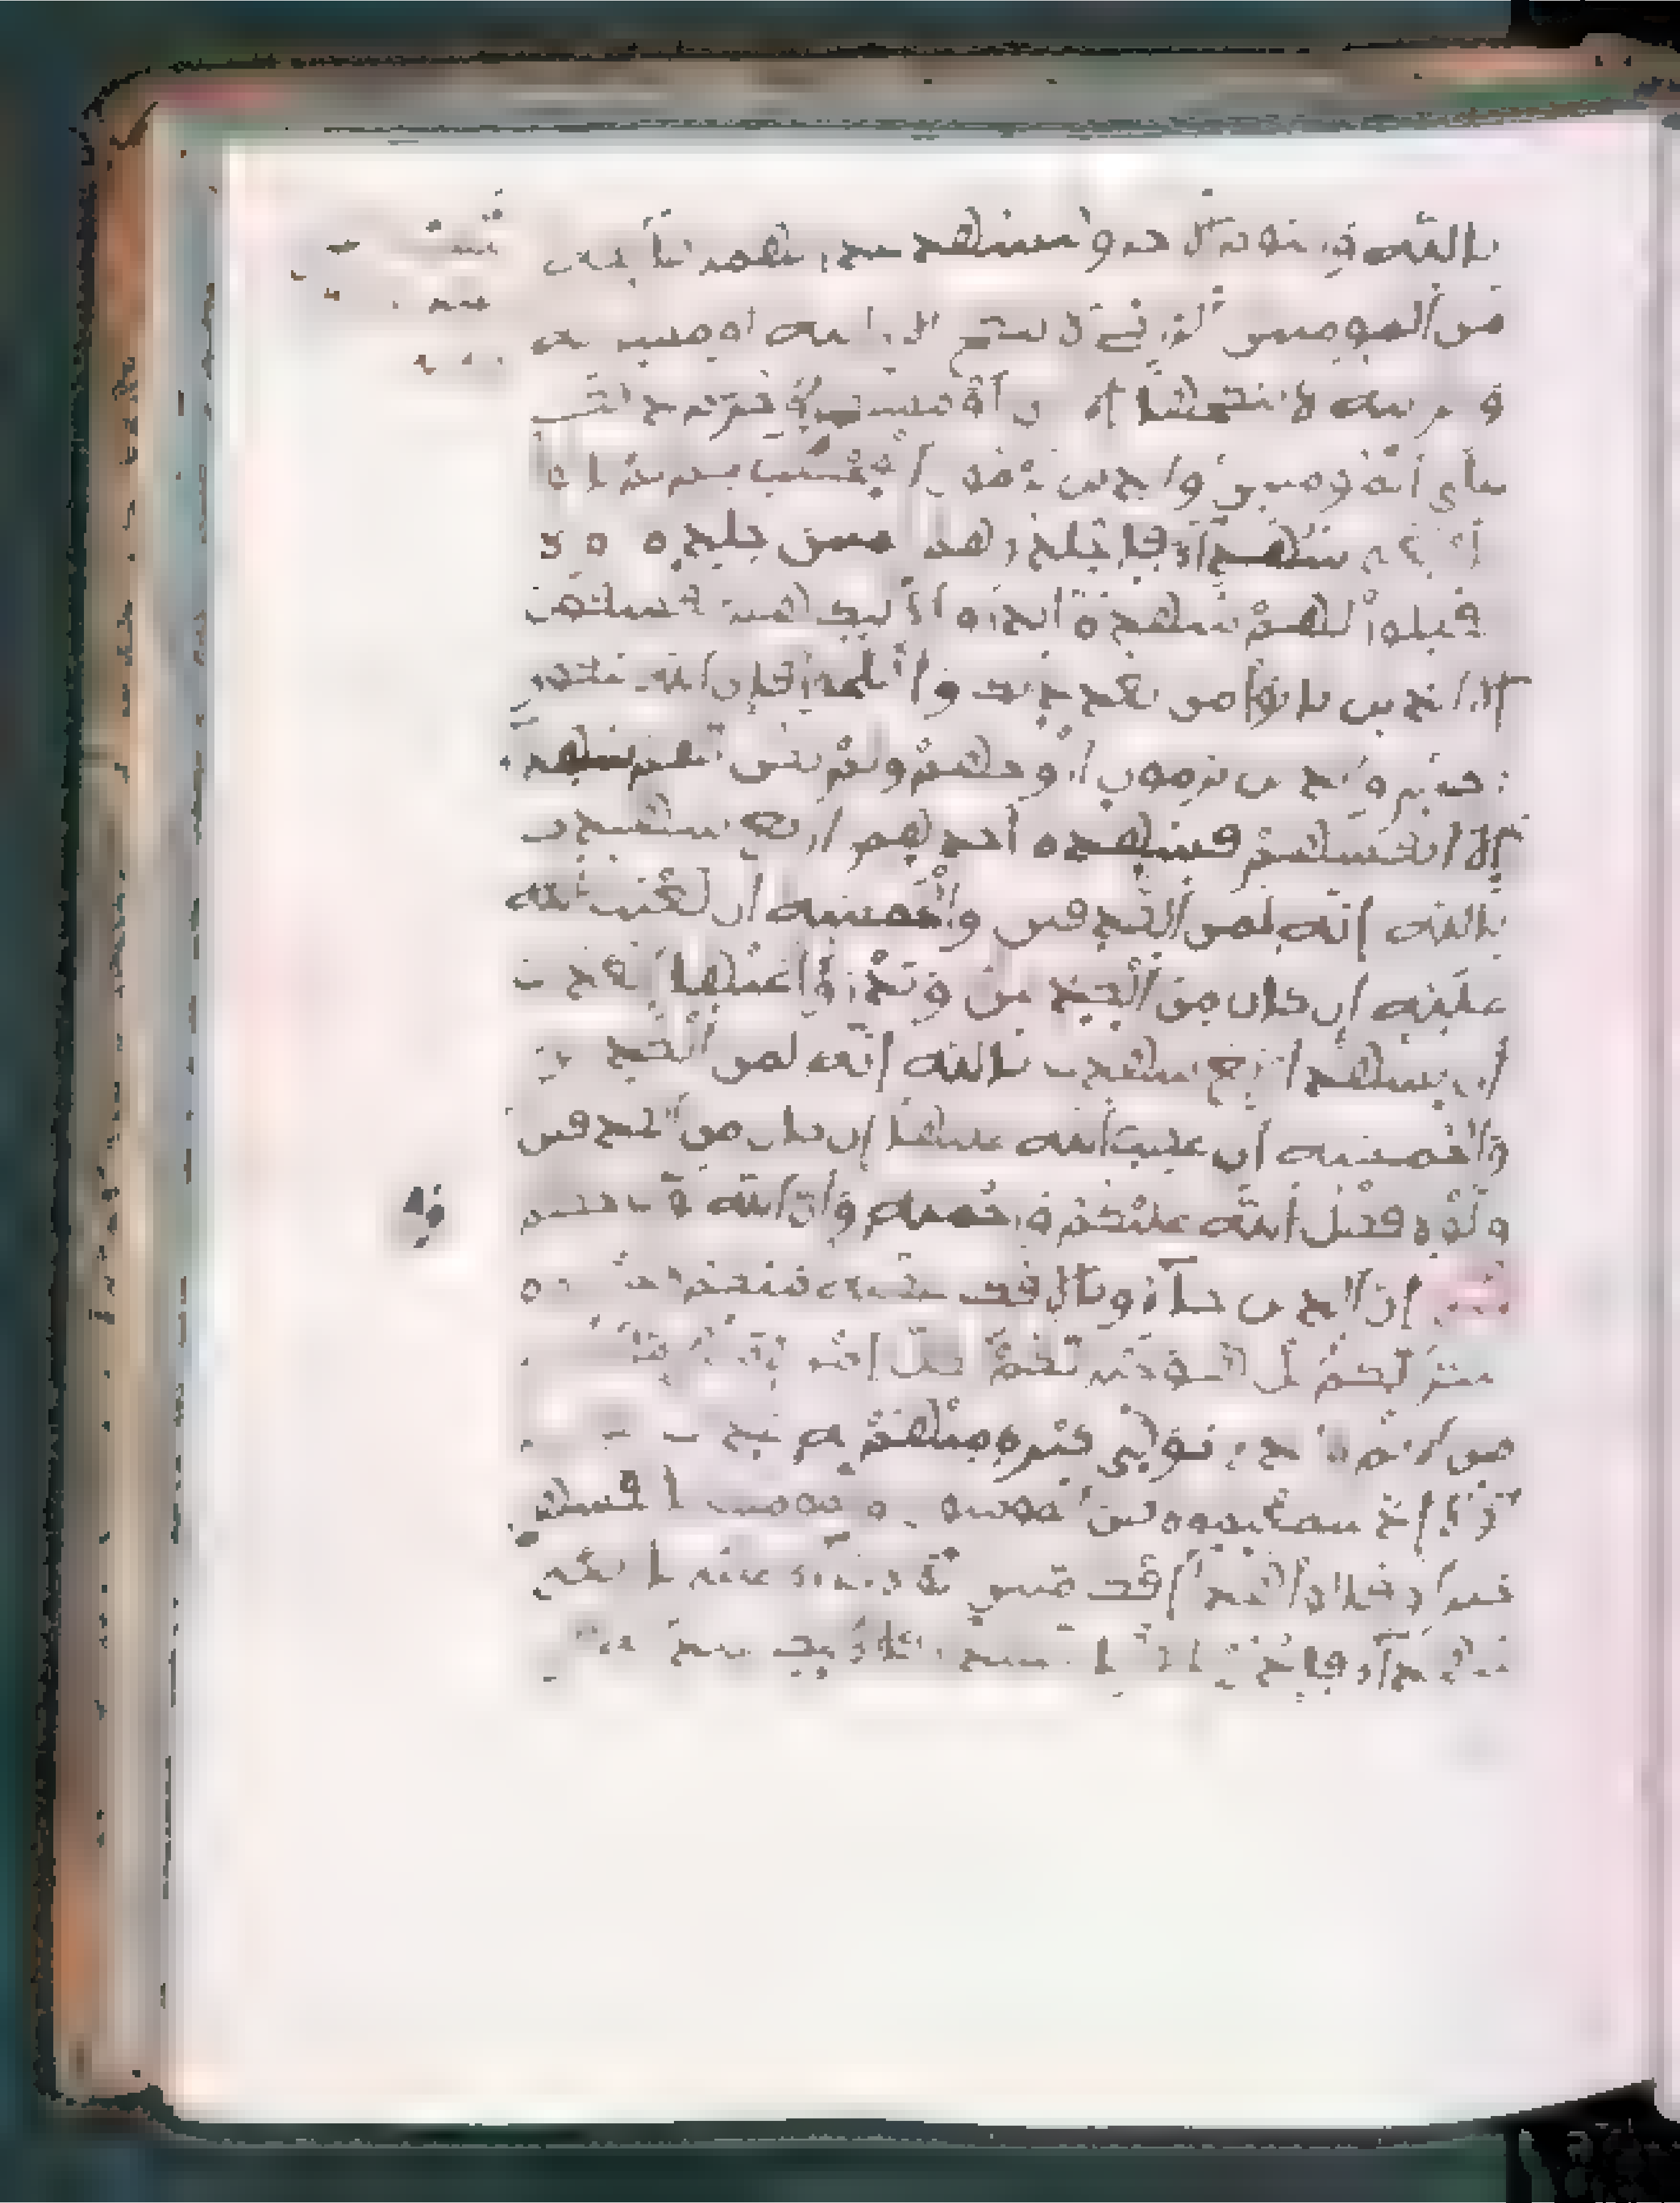 بالله واليوم الاخر وليشهد عذابهما طايفة
من المومنين الزاني لا ينكح الا زانية او مشركة
والزانية لا ينكحها الا زان او مشرك وحرم ذلك
على المومنين والذين يرمون المحصنت ثم لم ياتوا
باربعة شهداء فاجلدوهم ثمنين جلدة ولا
تقبلوا لهم شهدة ابدا واوليك هم الفسقون
الا الذين تابوا من بعد ذلك واصلحوا فان الله غفور
رحيم والذين يرمون ازوجهم ولم يكن لهم شهداء
الا انفسهم فشهدة احدهم اربع شهدت
بالله انه لمن الصدقين والخمسة ان لعنت الله
عليه ان كان من الكذبين ويدرؤا عنها العذاب
ان تشهد اربع شهدت بالله انه لمن الكذبين
والخمسة ان غضب الله عليها ان كان من الصدقين
ولولا فضل الله عليكم ورحمته وان الله تواب حكيم
ان الذين جاءو بالافك عصبة منكم لا تحسبوه
شرا لكم بل هو خير لكم لكل امرئ منهم ما اكتسب
من الاثم والذي تولى كبره منهم له عذاب
لولا اذ سمعتموه ظن المومنون والمومنت بانفسهم
خيرا وقالوا هذا افك مبين لولا جاءو عليه باربعة
شهداء فاذ لم ياتوا بالشهداء فاوليك عند الله